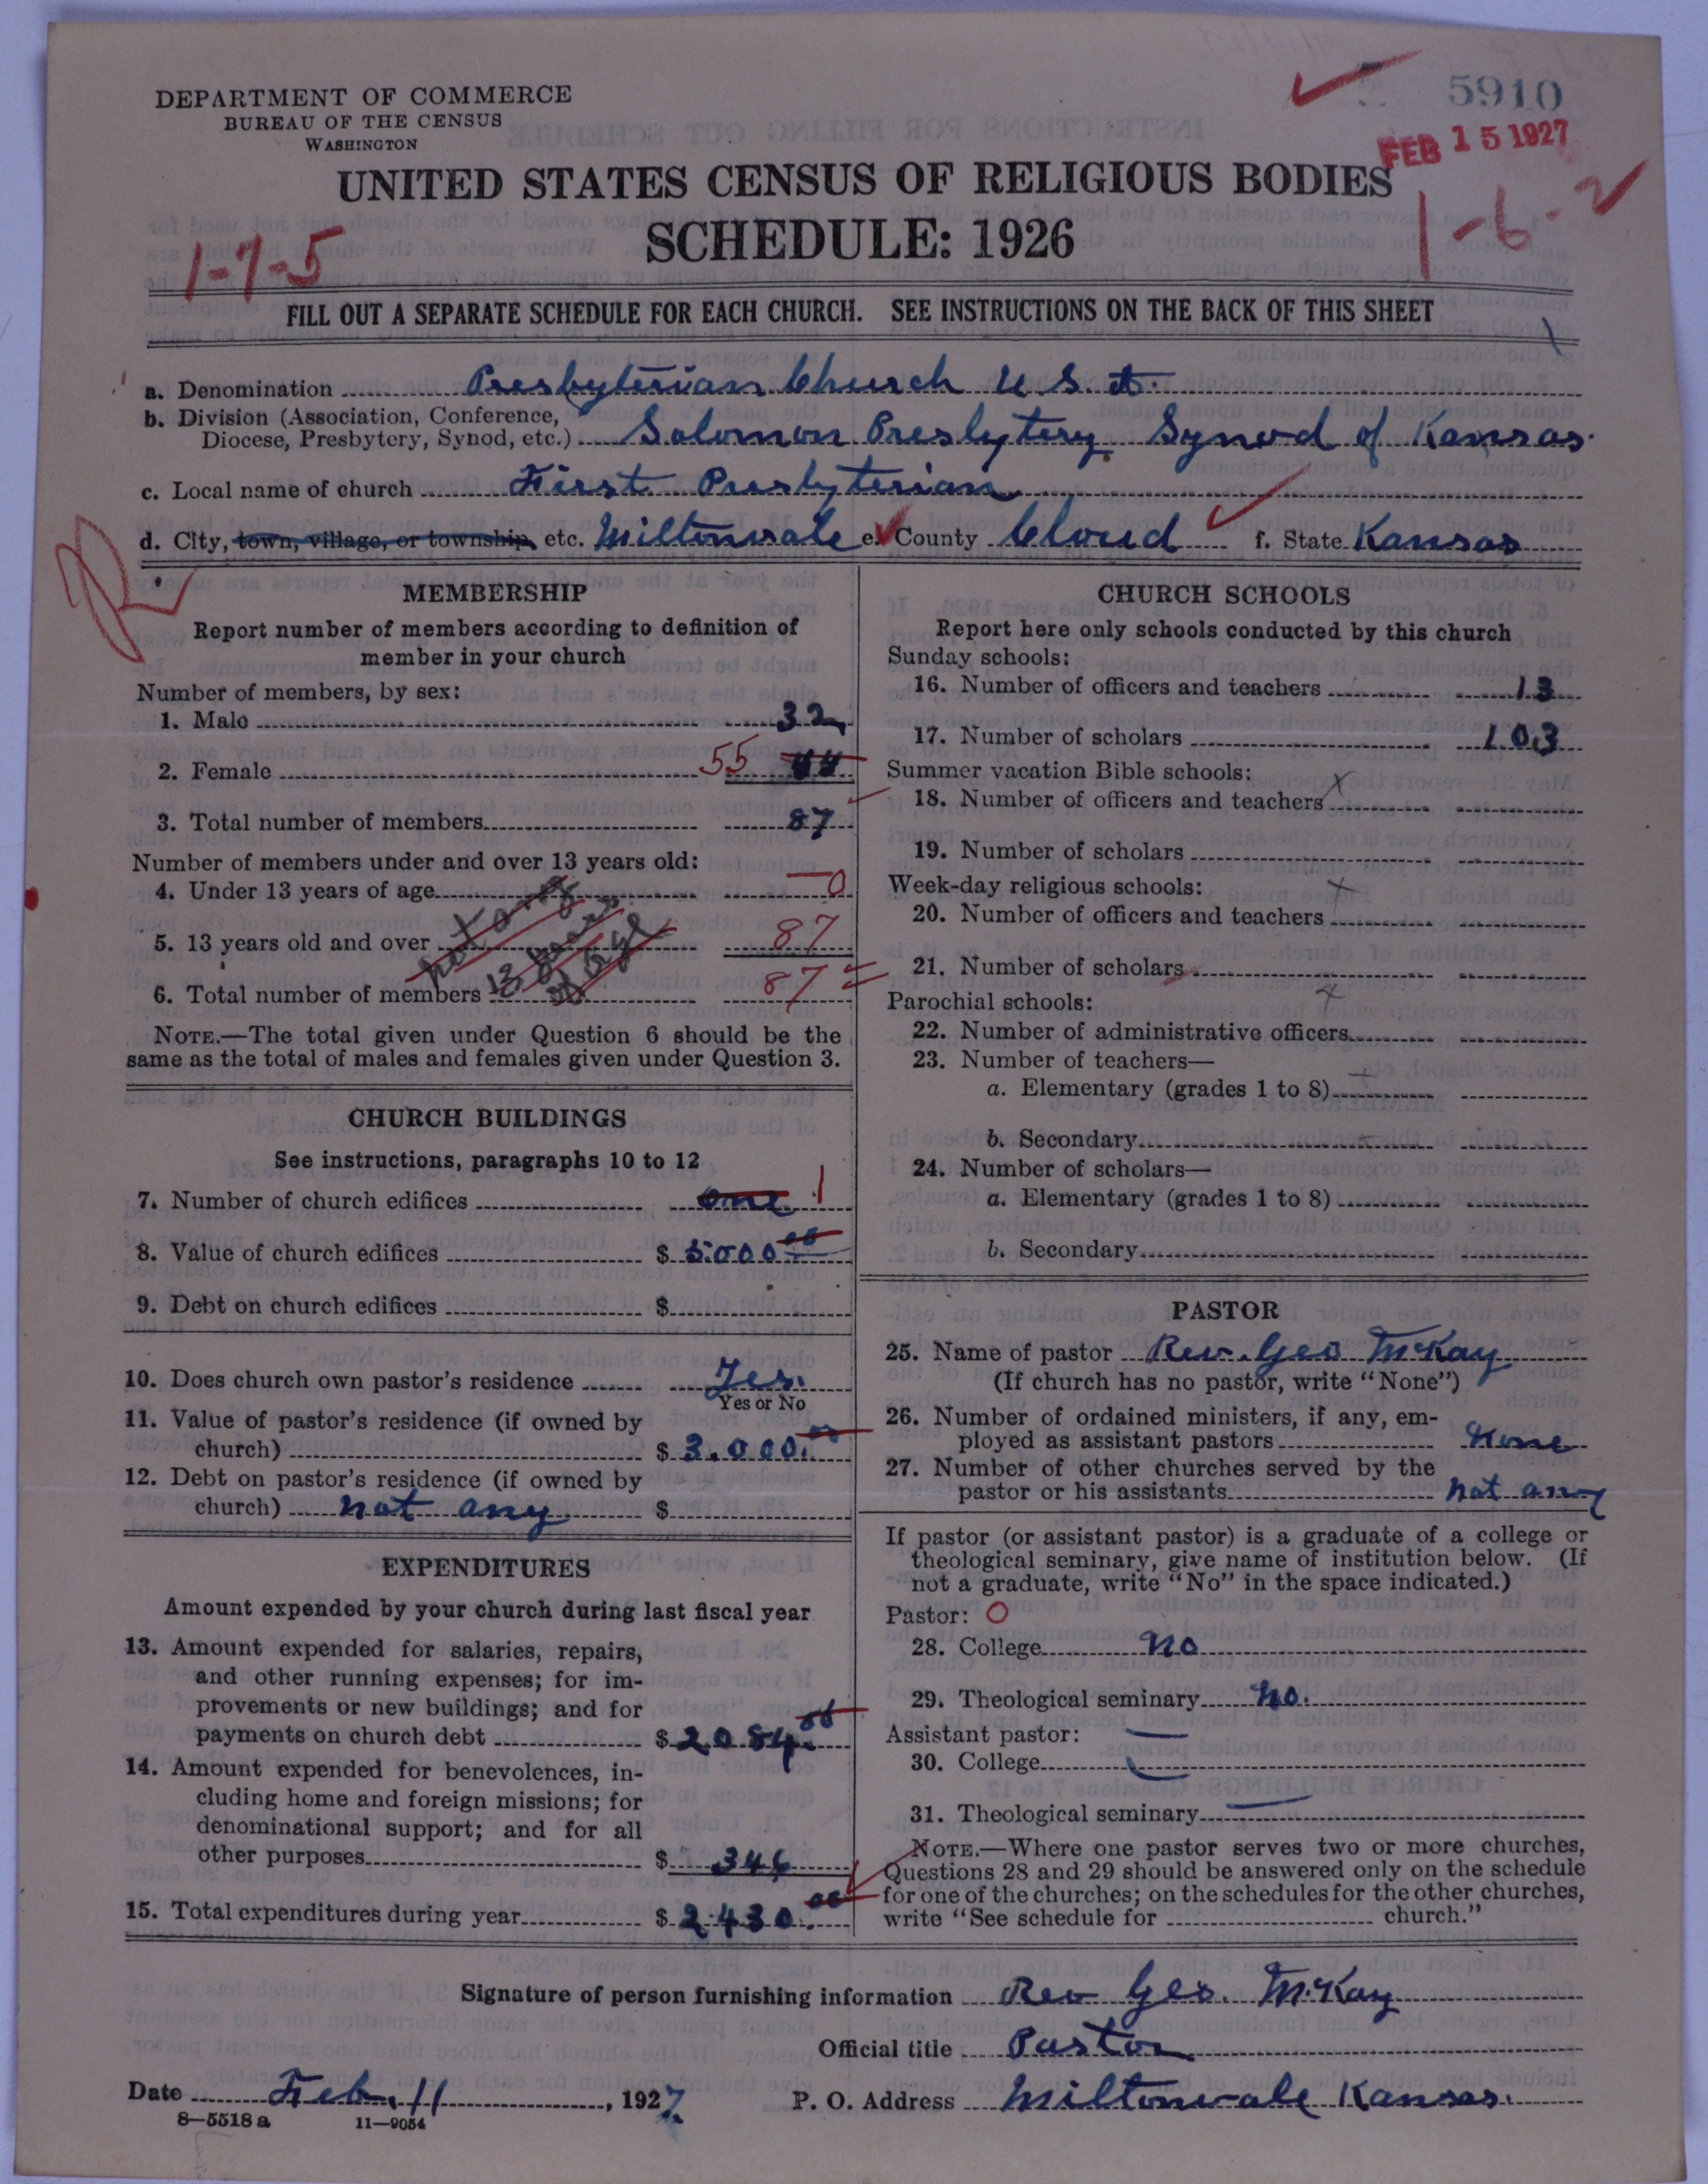 DEPARTMENT OF COMMERCE
BUREAU OF THE CENSUS
WASHINGTON
5910
FEB 15 1927
UNITED STATES CENSUS OF RELIGIOUS BODIES
SCHEDULE: 1926
1-7-5
1-6-2
FILL OUT A SEPARATE SCHEDULE FOR EACH CHURCH. SEE INSTRUCTIONS ON THE BACK OF THIS SHEET
a. Denomination Presbyterian Church U.S.A.
b. Division (Association, Conference,
Diocese, Presbytery, Synod, etc.) Solomon Presbytery Synod of Kansas.
c. Local name of church First Presbyterian
d. City, town, village, or township, etc. Miltonvale e. County Cloud f. State Kansas
R
MEMBERSHIP
Report number of members according to definition of
member in your church
Number of members, by sex:
1. Male 32
2. Female 55 44
3. Total number of members 87
Number of members under and over 13 years old:
4. Under 13 years of age 0
5. 13 years old and over 87
6. Total number of members 87
not any
13 years
of age
NOTE.—The total given under Question 6 should be the
same as the total of males and females given under Question 3.
CHURCH BUILDINGS
See instructions, paragraphs 10 to 12
7. Number of church edifices one 1
8. Value of church edifices $ 5.000 00
9. Debt on church edifices $
10. Does church own pastor's residence Yes.
Yes or No
11. Value of pastor's residence (if owned by
church) $ 3.000. 00
12. Debt on pastor's residence (if owned by
church) not any $
EXPENDITURES
Amount expended by your church during last fiscal year
13. Amount expended for salaries, repairs,
and other running expenses; for im-
provements or new buildings; and for
payments on church debt $ 2084. 00
14. Amount expended for benevolences, in-
cluding home and foreign missions; for
denominational support; and for all
other purposes $ 346
15. Total expenditures during year $ 2.430. 00
CHURCH SCHOOLS
Report here only schools conducted by this church
Sunday schools:
16. Number of officers and teachers 13
17. Number of scholars 103
Summer vacation Bible schools:
18. Number of officers and teachers x
19. Number of scholars
Week-day religious schools: x
20. Number of officers and teachers
21. Number of scholars
Parochial schools: x
22. Number of administrative officers
23. Number of teachers—
a. Elementary (grades 1 to 8) x
b. Secondary
24. Number of scholars—
a. Elementary (grades 1 to 8)
b. Secondary
PASTOR
25. Name of pastor Rev. Geo McKay
(If church has no pastor, write "None")
26. Number of ordained ministers, if any, em-
ployed as assistant pastors None
27. Number of other churches served by the
pastor or his assistants not any
If pastor (or assistant pastor) is a graduate of a college or
theological seminary, give name of institution below. (If
not a graduate, write "No" in the space indicated.)
Pastor: O
28. College no
29. Theological seminary no.
Assistant pastor: —
30. College
31. Theological seminary —
NOTE.—Where one pastor serves two or more churches,
Questions 28 and 29 should be answered only on the schedule
for one of the churches; on the schedules for the other churches,
write "See schedule for church."
Signature of person furnishing information Rev Geo. McKay
Official title Pastor
Date Feb. 11, 1927 P. O. Address Miltonvale Kansas.
8—5518 a 11—9054